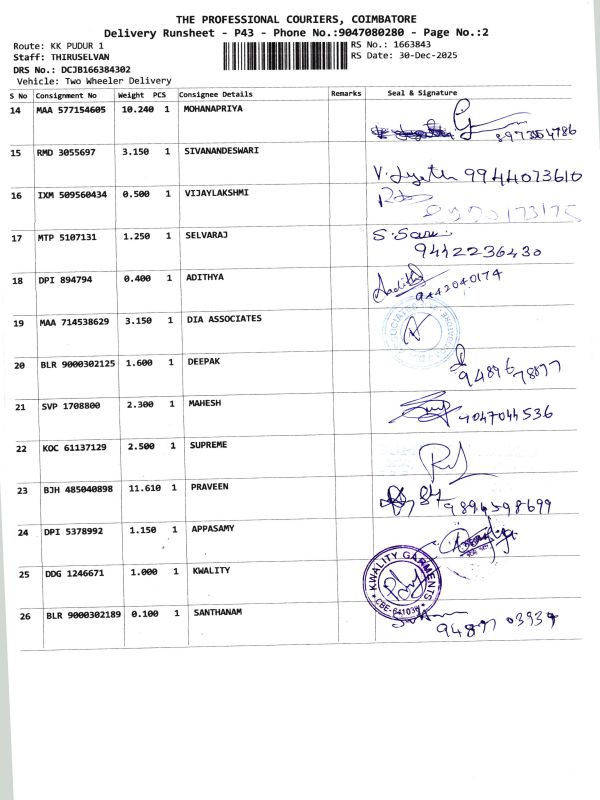 THE PROFESSIONAL COURIERS, COIMBATORE
Delivery Runsheet - P43 - Phone No.:9047080280 - Page No.:2
Route: KK PUDUR 1 RS No.: 1663843
Staff: THIRUSELVAN RS Date: 30-Dec-2025
DRS No.: DCJB166384302
Vehicle: Two Wheeler Delivery
S No Consignment No Weight PCS Consignee Details Remarks Seal & Signature
14 MAA 577154605 10.240 1 MOHANAPRIYA
15 RMD 3055697 3.150 1 SIVANANDESWARI
9944073610
16 IXM 509560434 0.500 1 VIJAYLAKSHMI
17 MTP 5107131 1.250 1 SELVARAJ
9442236430
18 DPI 894794 0.400 1 ADITHYA
9442040174
19 MAA 714538629 3.150 1 DIA ASSOCIATES
20 BLR 9000302125 1.600 1 DEEPAK
9489678877
21 SVP 1708800 2.300 1 MAHESH
22 KOC 61137129 2.500 1 SUPREME
23 BJH 485040898 11.610 1 PRAVEEN
9894598699
24 DPI 5378992 1.150 1 APPASAMY
25 DDG 1246671 1.000 1 KWALITY
KWALITY GARMENTS
26 BLR 9000302189 0.100 1 SANTHANAM